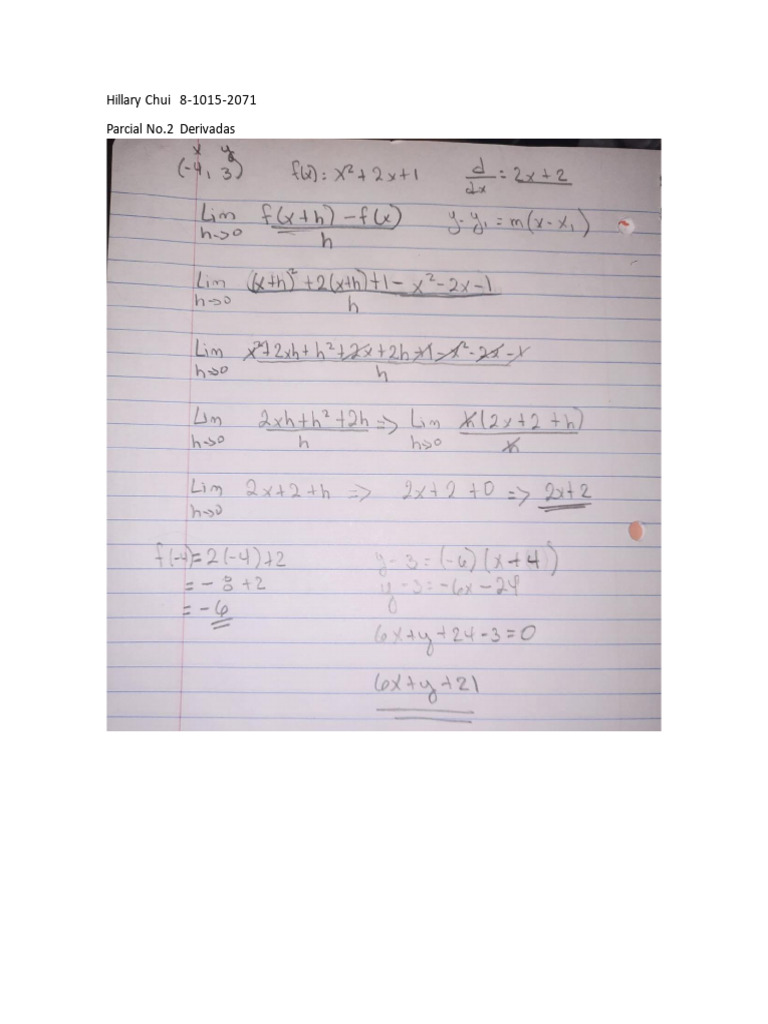 Hillary Chui 8-1015-2071
Parcial No.2 Derivadas
x y
(-4, 3) f(x): x² + 2x + 1 d/dx = 2x + 2
Lim h->0 f(x+h) - f(x) / h y - y₁ = m(x - x₁)
Lim h->0 (x+h)² + 2(x+h) + 1 - x² - 2x - 1 / h
Lim h->0 x² + 2xh + h² + 2x + 2h + 1 - x² - 2x - 1 / h
Lim h->0 2xh + h² + 2h / h => Lim h->0 h(2x + 2 + h) / h
Lim h->0 2x + 2 + h => 2x + 2 + 0 => 2x + 2
f(-4) = 2(-4) + 2 y - 3 = (-6)(x + 4)
= - 8 + 2 y - 3 = -6x - 24
= - 6
6x + y + 24 - 3 = 0
6x + y + 21